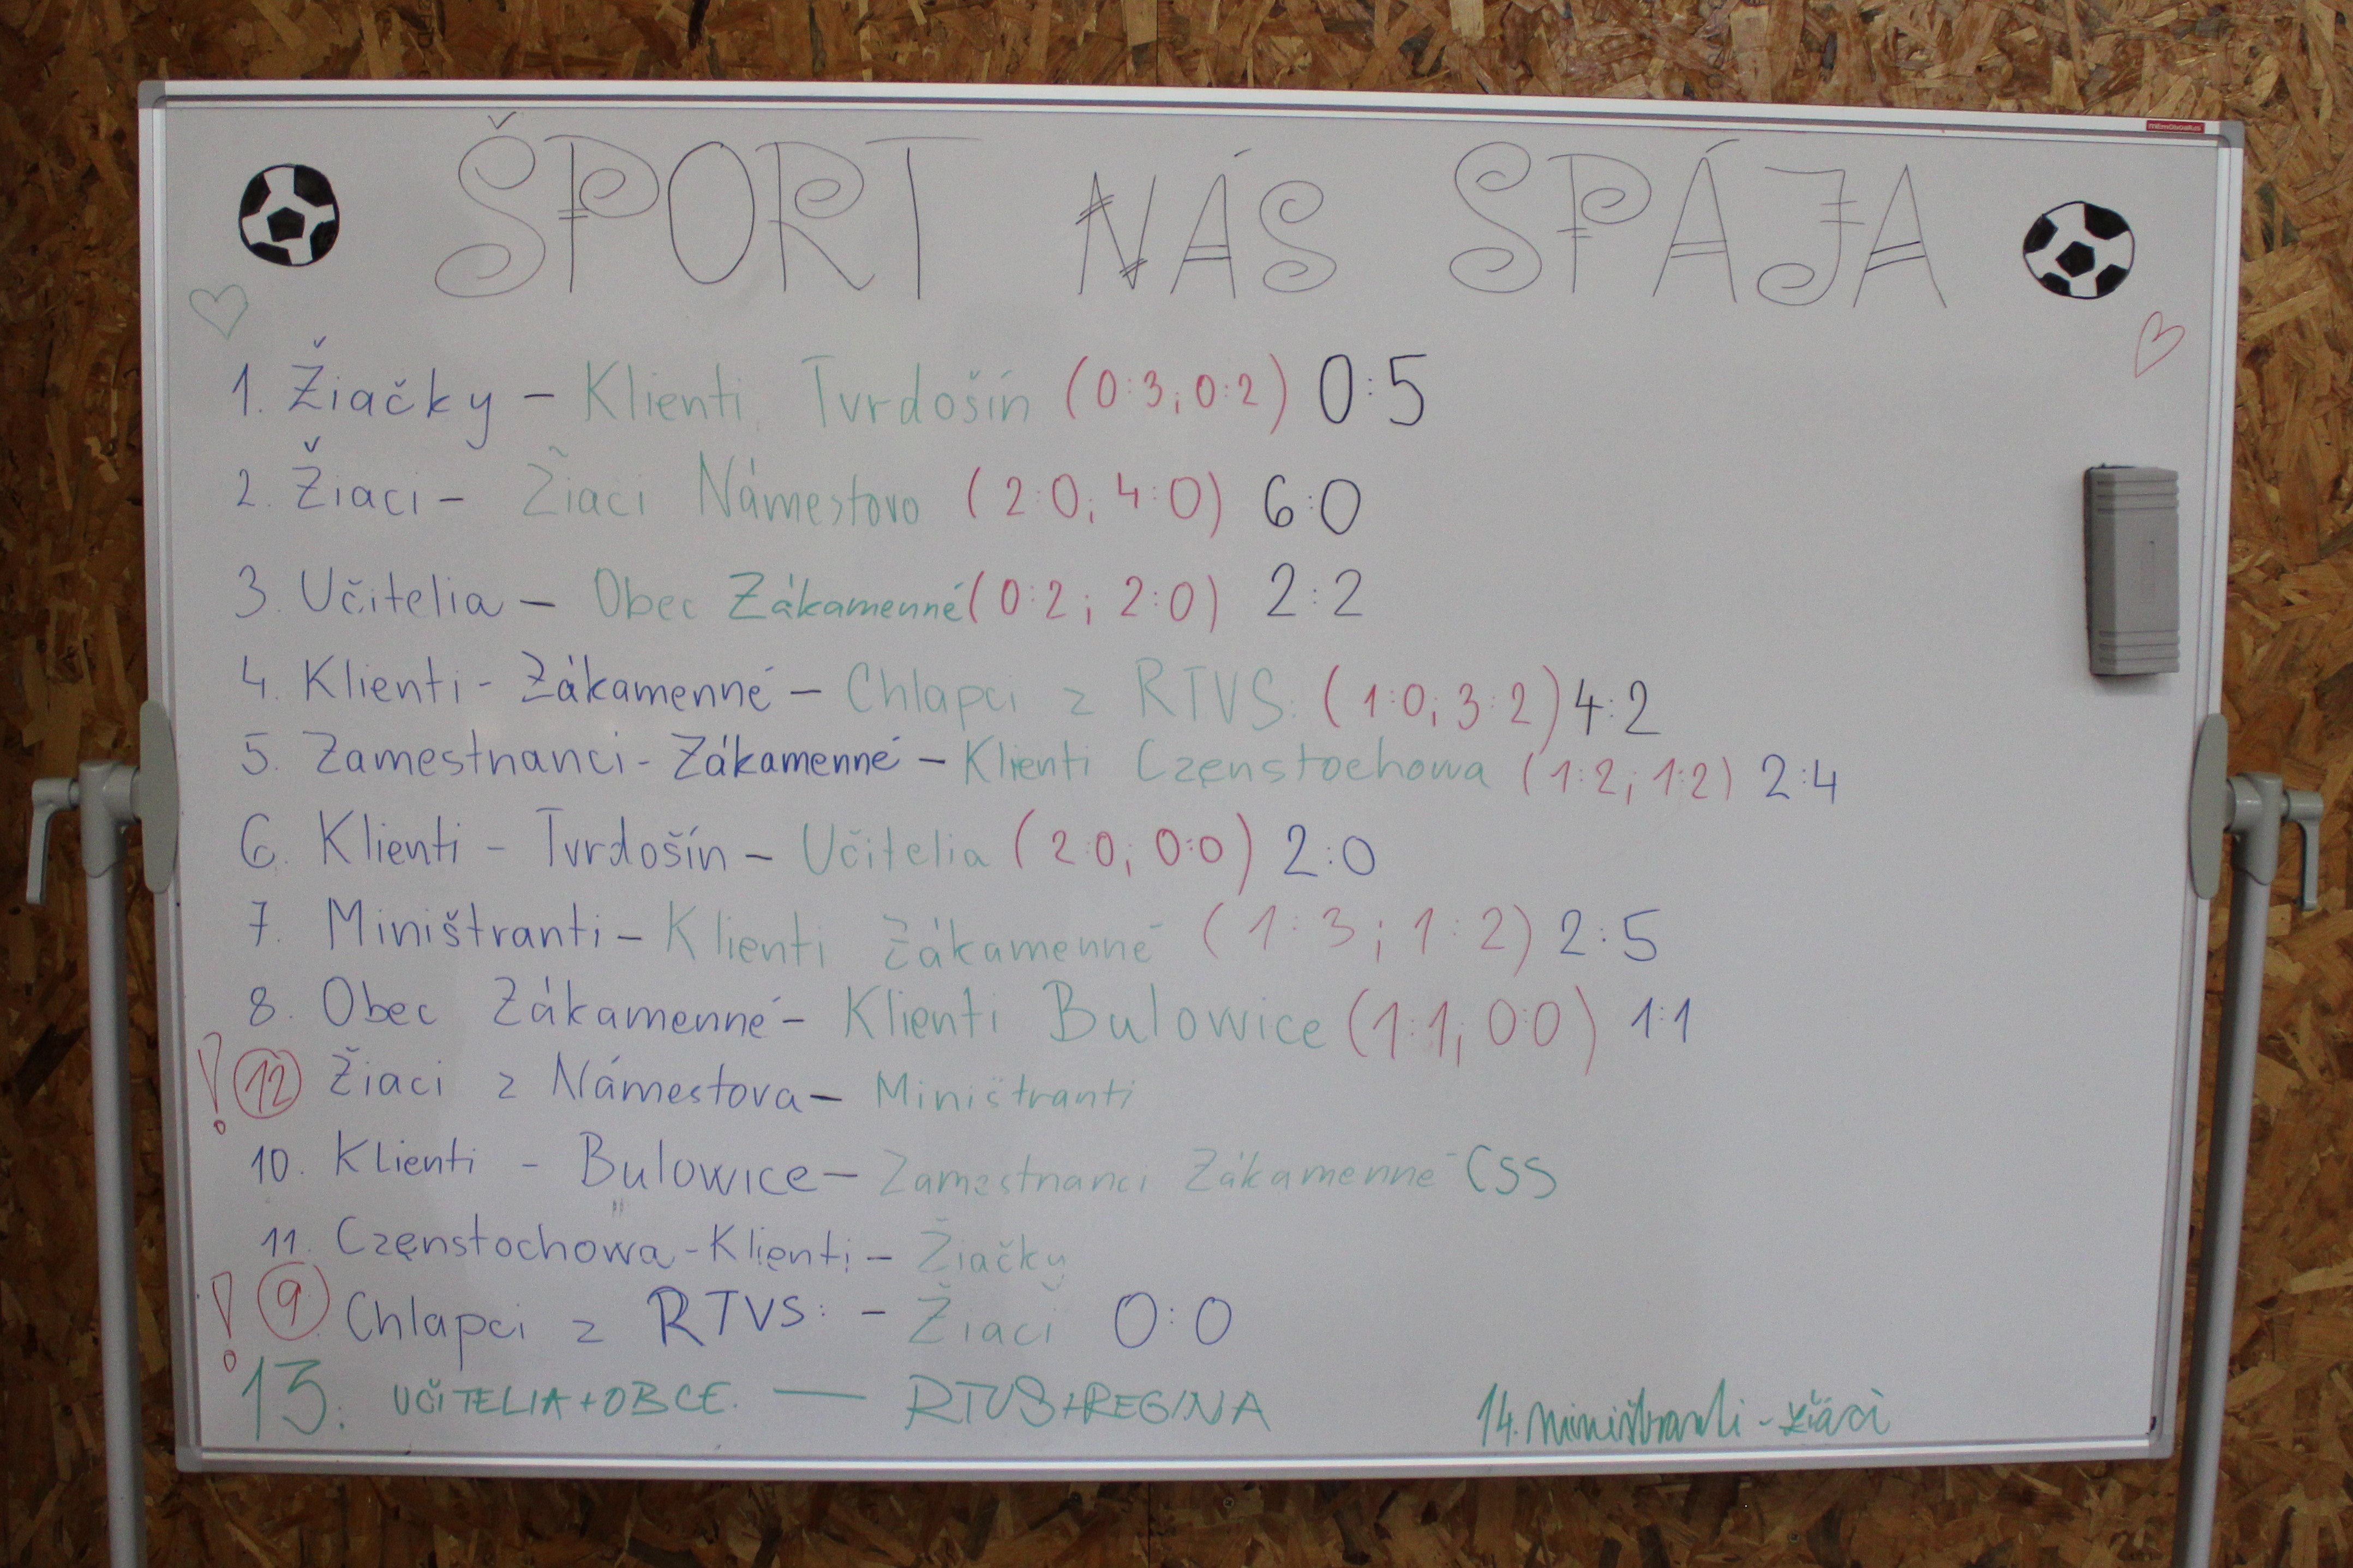 ŠPORT NÁS SPÁJA
1. Žiačky – Klienti Tvrdošín (0:3; 0:2) 0:5
2. Žiaci – Žiaci Námestovo (2:0; 4:0) 6:0
3. Učitelia – Obec Zákamenné (0:2; 2:0) 2:2
4. Klienti - Zákamenné – Chlapci z RTVS: (1:0; 3:2) 4:2
5. Zamestnanci - Zákamenné – Klienti Częnstochowa (1:2; 1:2) 2:4
6. Klienti - Tvrdošín – Učitelia (2:0; 0:0) 2:0
7. Miništranti – Klienti Zákamenné (1:3; 1:2) 2:5
8. Obec Zákamenné – Klienti Bulowice (1:1; 0:0) 1:1
! 12 Žiaci z Námestova – Miništranti
10. Klienti - Bulowice – Zamestnanci Zákamenné CSS
11. Częnstochowa - Klienti – Žiačky
! 9. Chlapci z RTVS: – Žiaci 0:0
13. UČITELIA + OBCE. — RTVS + REGINA
14. Miništranti - žiaci